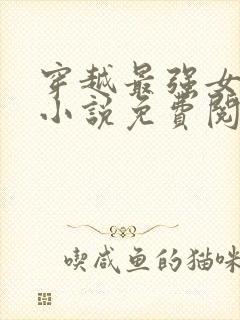 穿越最强女
小说免費閱
喫咸鱼的猫咪